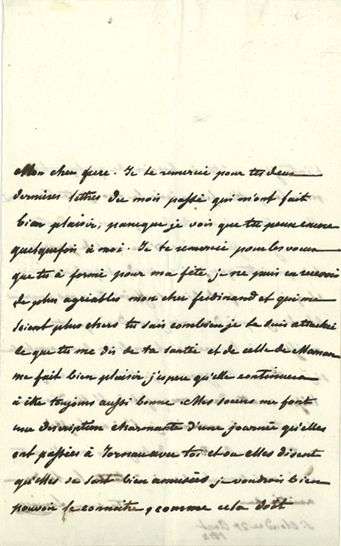 Mon cher frere. Je te remercie pour tes deux
dernieres lettres du mois passé qui m'ont fait
bien plaisir, parceque je vois que tu penses encore
quelquefois à moi. Je te remercie pour les voeux
que tu à formé pour ma fête, je ne puis en recevoir
de plus agréables mon cher ferdinand et qui me
soient plus chers tu sais combien je te suis attachée
ce que tu me dis de ta santé et de celle de Maman
me fait bien plaisir j'espere qu'elle continuera
à être toujours aussi bonne. Mes soeurs me font
une description charmante d'une journée qu'elles
ont passées à avec toi et ou elles disent
qu'elles se sont bien amusées je voudrois bien
pouvoir le connaitre, comme cela doit